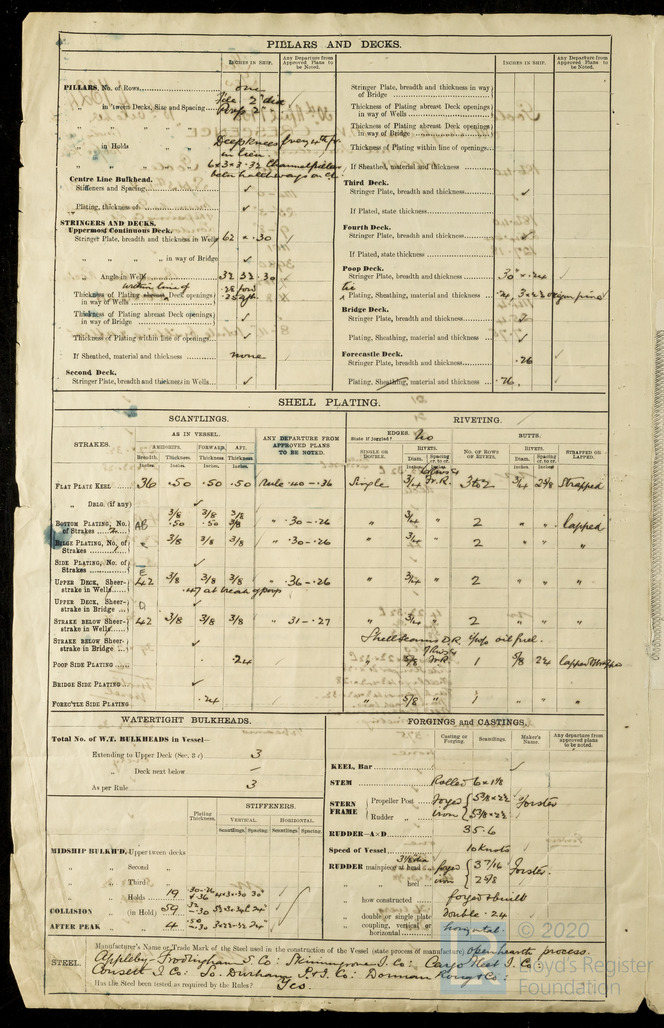 PILLARS AND DECKS.
INCHES IN SHIP.
Any Departure from Approved Plans to be Noted.
INCHES IN SHIP.
Any Departure from Approved Plans to be Noted.
PILLARS, No. of Rows one
in 'tween Decks, Size and Spacing
" " " "
" in Holds Deep knees
in lieu
" " "
Centre Line Bulkhead.
Stiffeners and Spacing ✓
Plating, thickness of ✓
STRINGERS AND DECKS.
Uppermost Continuous Deck.
Stringer Plate, breadth and thickness in Wells 62 x .30
" " " " in way of Bridge ✓
Angle in Wells 32 32 .30
within line of
Thickness of Plating abreast Deck openings in way of Wells
Thickness of Plating abreast Deck openings in way of Bridge ✓
Thickness of Plating within line of openings ✓
If Sheathed, material and thickness none
Second Deck.
Stringer Plate, breadth and thickness in Wells ✓
Stringer Plate, breadth and thickness in way of Bridge
Thickness of Plating abreast Deck openings in way of Wells
Thickness of Plating abreast Deck openings in way of Bridge
Thickness of Plating within line of openings
If Sheathed, material and thickness
Third Deck.
Stringer Plate, breadth and thickness ✓
If Plated, state thickness
Fourth Deck.
Stringer Plate, breadth and thickness ✓
If Plated, state thickness
Poop Deck.
Stringer Plate, breadth and thickness 30 x .24
Plating, Sheathing, material and thickness .24
Bridge Deck.
Stringer Plate, breadth and thickness
Plating, Sheathing, material and thickness ✓
Forecastle Deck.
Stringer Plate, breadth and thickness .26
Plating, Sheathing, material and thickness .26
SHELL PLATING.
SCANTLINGS.
RIVETING.
STRAKES.
AS IN VESSEL.
AMIDSHIPS. FORWARD. AFT.
Breadth. Thickness. Thickness. Thickness.
Inches. Inches. Inches. Inches.
ANY DEPARTURE FROM APPROVED PLANS TO BE NOTED.
EDGES.
State if joggled? No
SINGLE OR DOUBLE.
RIVETS.
Diam. Spacing cr. to cr.
BUTTS.
NO. OF ROWS OF RIVETS.
RIVETS.
Diam. Spacing cr. to cr.
STRAPPED OR LAPPED.
FLAT PLATE KEEL 36 .50 .50 .50 Rule .40 - .36 Single 3/4 3/4 Strapped
" DBLG. (if any) ✓
BOTTOM PLATING, No. of Strakes 3/8 3/8 3/8 .50 .50 " .30 - .26 " 3/4 " 2 " " lapped
BILGE PLATING, No. of Strakes 3/8 3/8 3/8 " .30 - .26 " 3/4 " 2 " " "
SIDE PLATING, No. of Strakes ✓
UPPER DECK, Sheerstrake in Wells 42 3/8 3/8 3/8 " .36 - .26 " 3/4 " 2 " " "
at break of poop
UPPER DECK, Sheerstrake in Bridge ✓
STRAKE BELOW Sheerstrake in Wells 42 3/8 3/8 3/8 " 31 - .27 " 3/4 " 2 " " "
STRAKE BELOW Sheerstrake in Bridge ✓
Shell seams D.R. oil fuel.
POOP SIDE PLATING .24 " 5/8 1 5/8
BRIDGE SIDE PLATING ✓
FOREC'TLE SIDE PLATING .24 " 5/8 " 1 " " "
WATERTIGHT BULKHEADS.
Total No. of W.T. BULKHEADS in Vessel—
Extending to Upper Deck (Sec. 3 c) 3
" Deck next below
As per Rule 3
Plating Thickness.
STIFFENERS.
VERTICAL. HORIZONTAL.
Scantlings. Spacing. Scantlings. Spacing.
MIDSHIP BULKH'D, Upper tween decks
" " Second "
" " Third "
" " Holds 19
COLLISION " (in Hold) 59
AFTER PEAK " " 4
FORGINGS and CASTINGS.
Casting or Forging.
Scantlings.
Maker's Name.
Any departure from approved plans to be noted.
KEEL, Bar ✓
STEM Rolled
STERN FRAME { Propeller Post Forged Forster
Rudder " iron
RUDDER—A×D 35.6
Speed of Vessel 10 knots
RUDDER mainpiece at head forged 3 7/16 Forster.
" " heel iron 2 5/8
" how constructed forged & built
" double or single plate double .24
" coupling, vertical or horizontal horizontal.
STEEL.
Manufacturer's Name or Trade Mark of the Steel used in the construction of the Vessel (state process of manufacture) open hearth process.
Appleby-Frodingham S. Co: Skinningrove I. Co: Cargo Fleet I. Co.
Consett I. Co: So. Durham S. & I. Co: Dorman Long & Co:
Has the Steel been tested as required by the Rules? Yes.
© 2020
Lloyd's Register
Foundation
LR